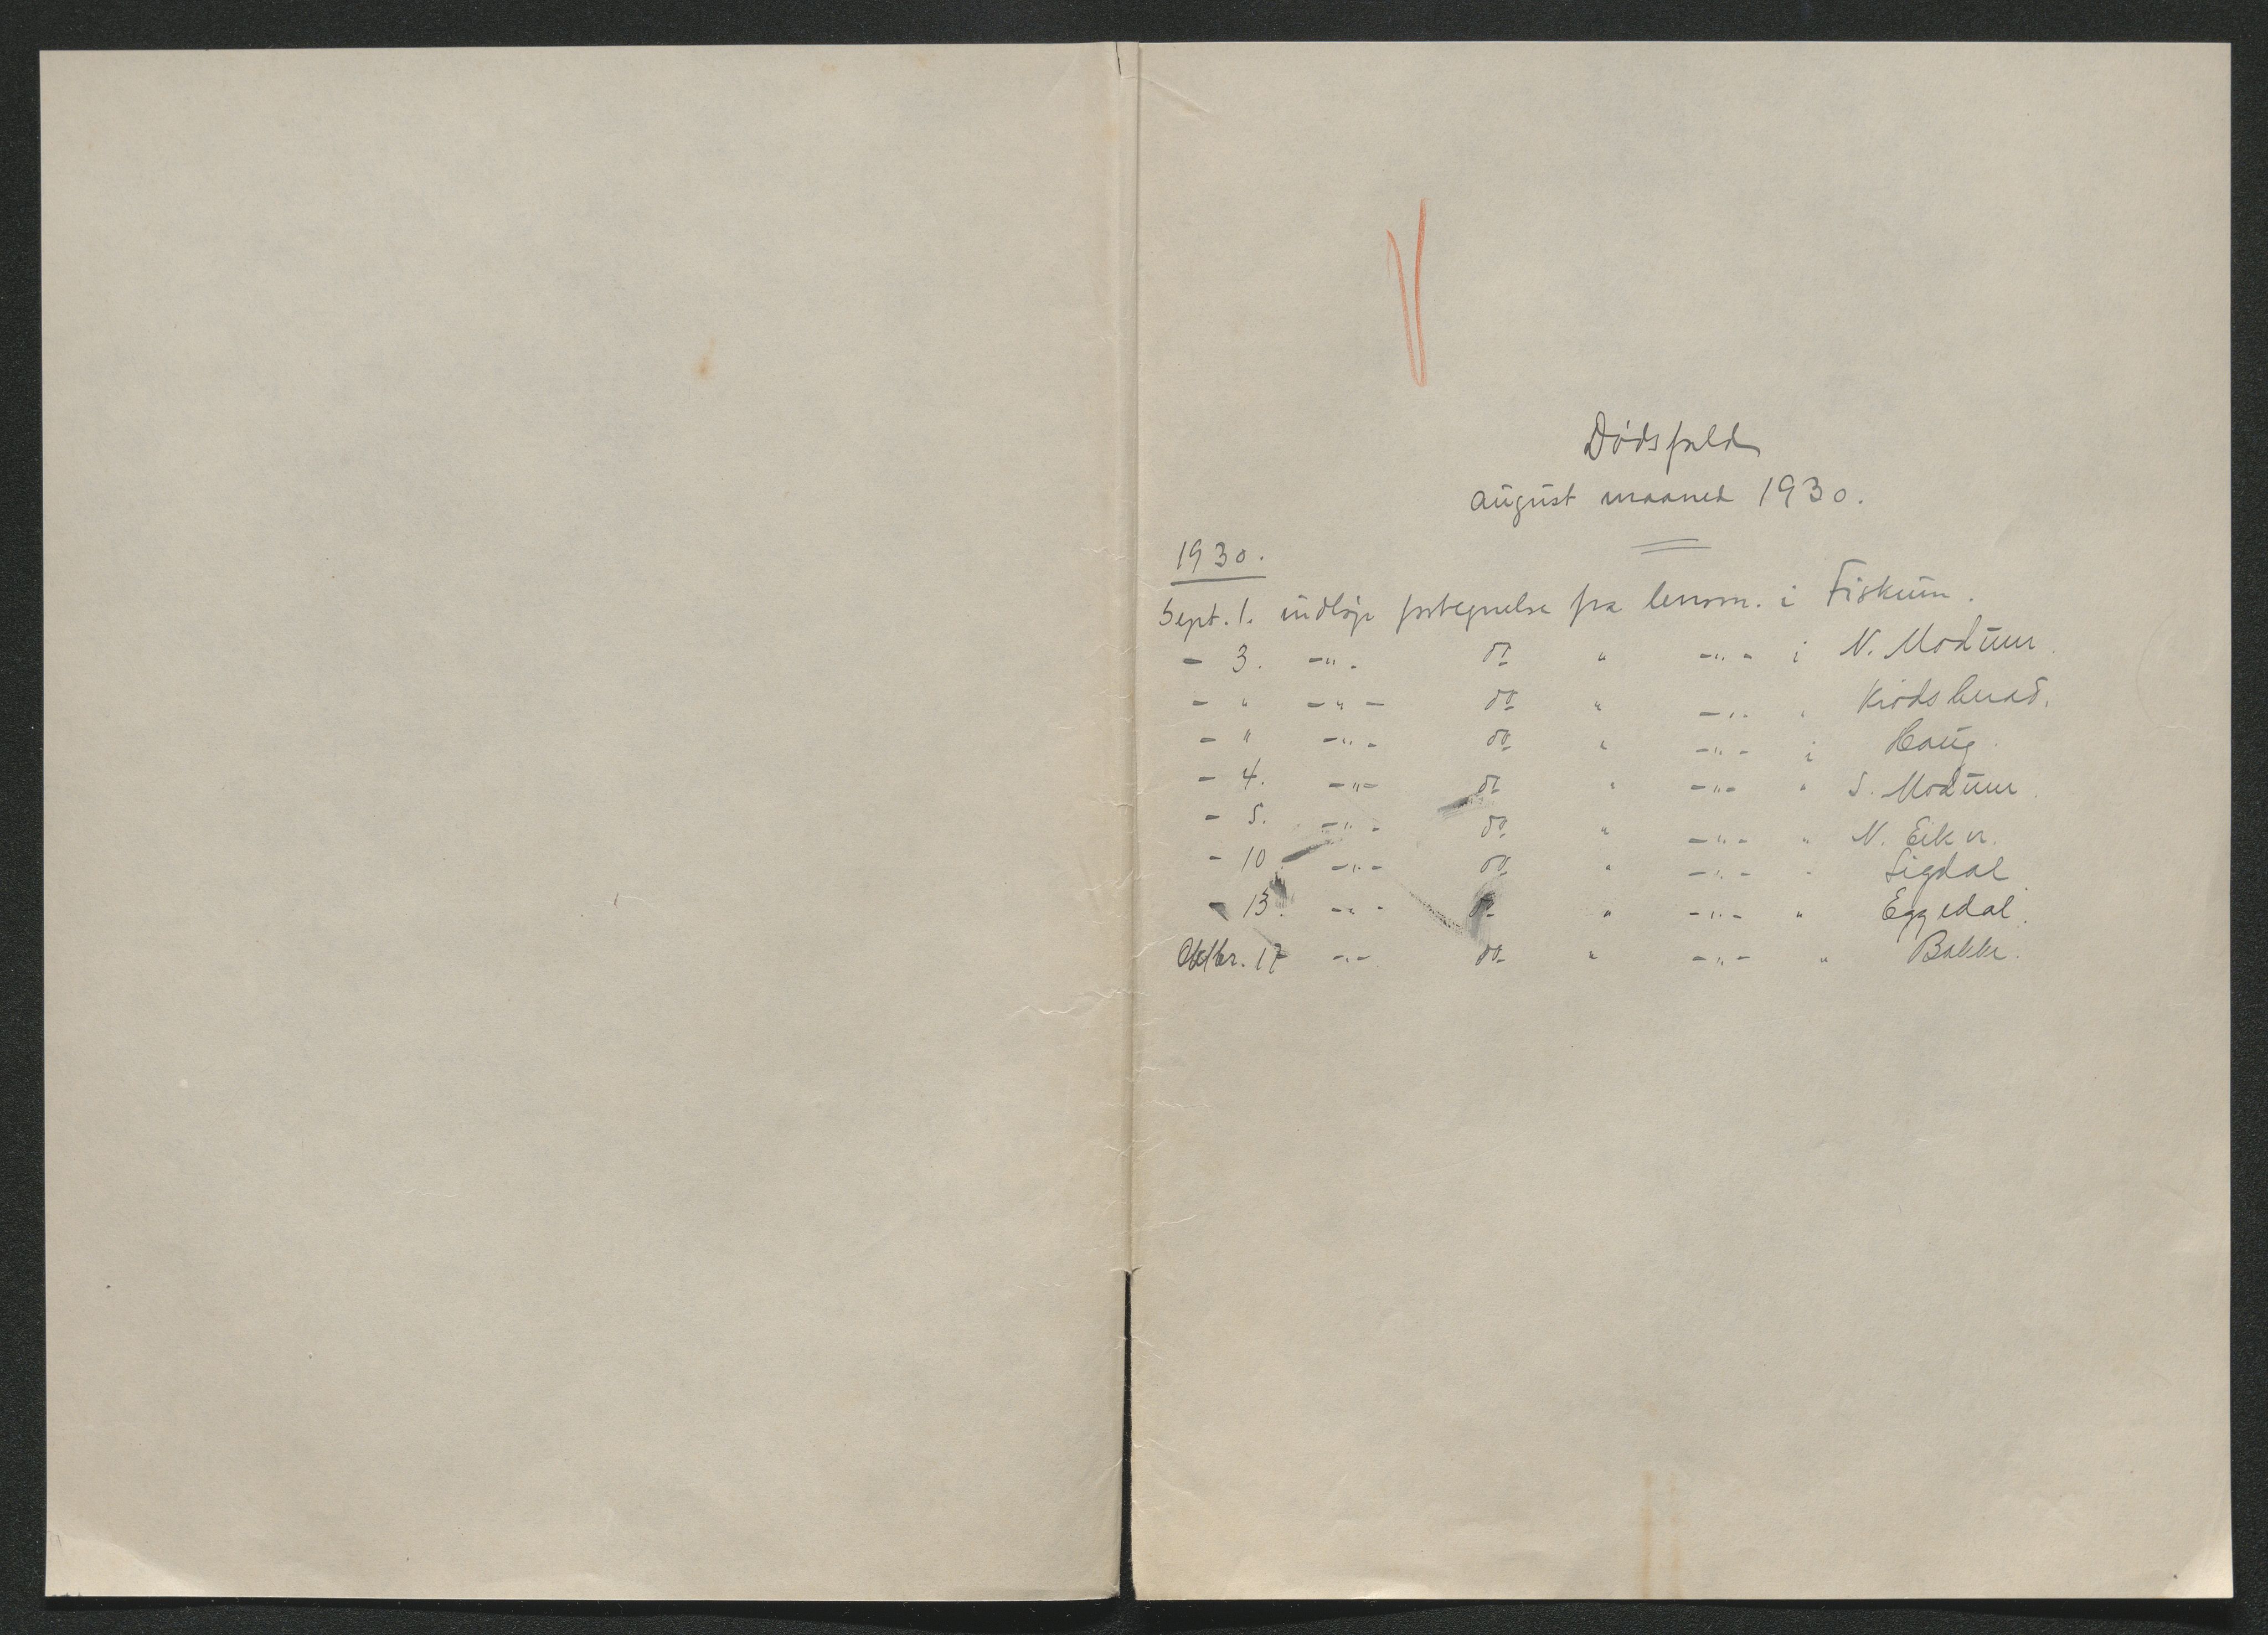 Dødsfald
august maaned 1930.
1930.
Sept. 1. indløp fortegnelse fra lensm. i Fiskum.
- 3. -"- do " -"- i N. Modum.
- " -"- do " -"- " Krødsherad.
- " -"- do " -"- i Haug.
- 4. -"- do " -"- " S. Modum.
- 5. -"- do " -"- " N. Eiker.
- 10. -"- do " -"- " Sigdal.
- 13. -"- do " -"- " Eggedal.
Oktbr. 17 -"- do " -"- " Bakke.